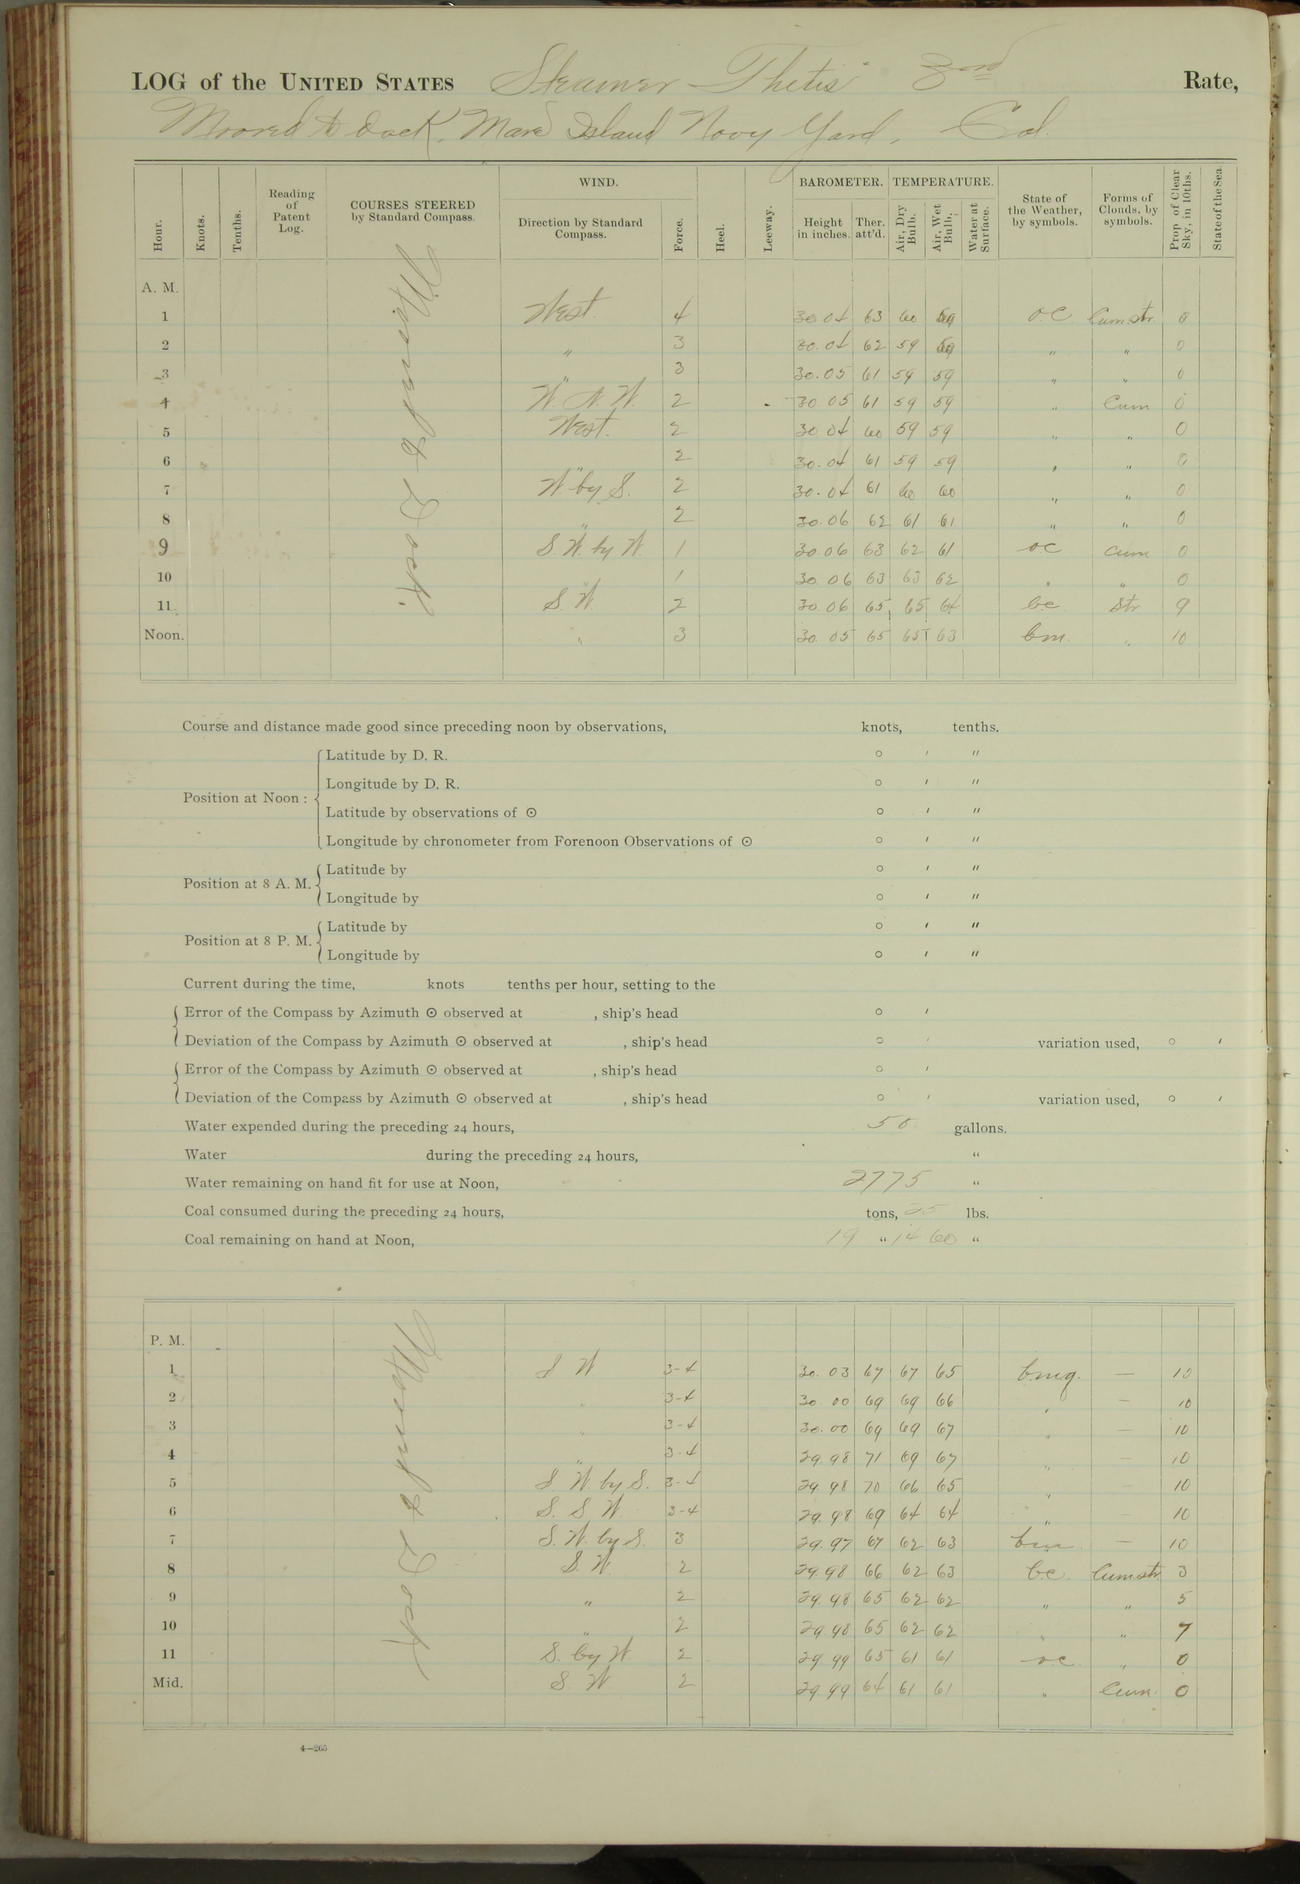 LOG of the UNITED STATES Steamer Thetis 3rd Rate,
Moored to dock, Mare Island Navy Yard, Cal
Hour. Knots. Tenths. Reading of Patent Log. COURSES STEERED by Standard Compass. WIND. Direction by Standard Compass. Force. Heel. Leeway. BAROMETER. Height in inches. Ther. att'd. TEMPERATURE. Air, Dry Bulb. Air, Wet Bulb. Water at Surface. State of the Weather, by symbols. Forms of Clouds, by symbols. Prop. of Clear Sky, in 10ths. State of the Sea.
Moored to Dock.
A. M.
1 West. 4 30.04 63 60 59 o.c Cum str. 0
2 " 3 30.04 62 59 59 " " 0
3 " 3 30.05 61 59 59 " " 0
4 W. N. W. 2 30 05 61 59 59 " Cum 0
5 West. 2 30 04 60 59 59 " " 0
6 2 30.04 61 59 59 " " 0
7 W by S. 2 30.04 61 60 60 " " 0
8 " 2 30.06 62 61 61 " " 0
9 S W. by W. 1 30 06 63 62 61 oc cum 0
10 " 1 30 06 63 63 62 " " 0
11 S. W 2 30 06 65 65 64 bc Str 9
Noon. " 3 30. 05 65 65 63 bm. " 10
Course and distance made good since preceding noon by observations, knots, tenths.
Position at Noon : Latitude by D. R. ° ′ ″
Longitude by D. R. ° ′ ″
Latitude by observations of ☉ ° ′ ″
Longitude by chronometer from Forenoon Observations of ☉ ° ′ ″
Position at 8 A. M. Latitude by ° ′ ″
Longitude by ° ′ ″
Position at 8 P. M. Latitude by ° ′ ″
Longitude by ° ′ ″
Current during the time, knots tenths per hour, setting to the
Error of the Compass by Azimuth ☉ observed at , ship's head ° ′
Deviation of the Compass by Azimuth ☉ observed at , ship's head ° ′ variation used, ° ′
Error of the Compass by Azimuth ☉ observed at , ship's head ° ′
Deviation of the Compass by Azimuth ☉ observed at , ship's head ° ′ variation used, ° ′
Water expended during the preceding 24 hours, 50 gallons.
Water during the preceding 24 hours, "
Water remaining on hand fit for use at Noon, 2775 "
Coal consumed during the preceding 24 hours, tons, 25 lbs.
Coal remaining on hand at Noon, 19 " 1460 "
Moored to Dock
P. M.
1 S W 3-4 30. 03 67 67 65 bmq. — 10
2 " 3-4 30 00 69 69 66 " — 10
3 " 3-4 30.00 69 69 67 " — 10
4 " 3-4 29.98 71 69 67 " — 10
5 S W. by S. 3-4 29 98 70 66 65 " — 10
6 S. S W. 3-4 29.98 69 64 64 " — 10
7 S. W. by S. 3 29.97 67 62 63 bm — 10
8 S. W. 2 29.98 66 62 63 bc. Cum str 3
9 " 2 29.98 65 62 62 " " 5
10 " 2 29 98 65 62 62 " " 7
11 S. by W. 2 29 99 65 61 61 oc " 0
Mid. S. W 2 29.99 64 61 61 " Cum. 0
4—265